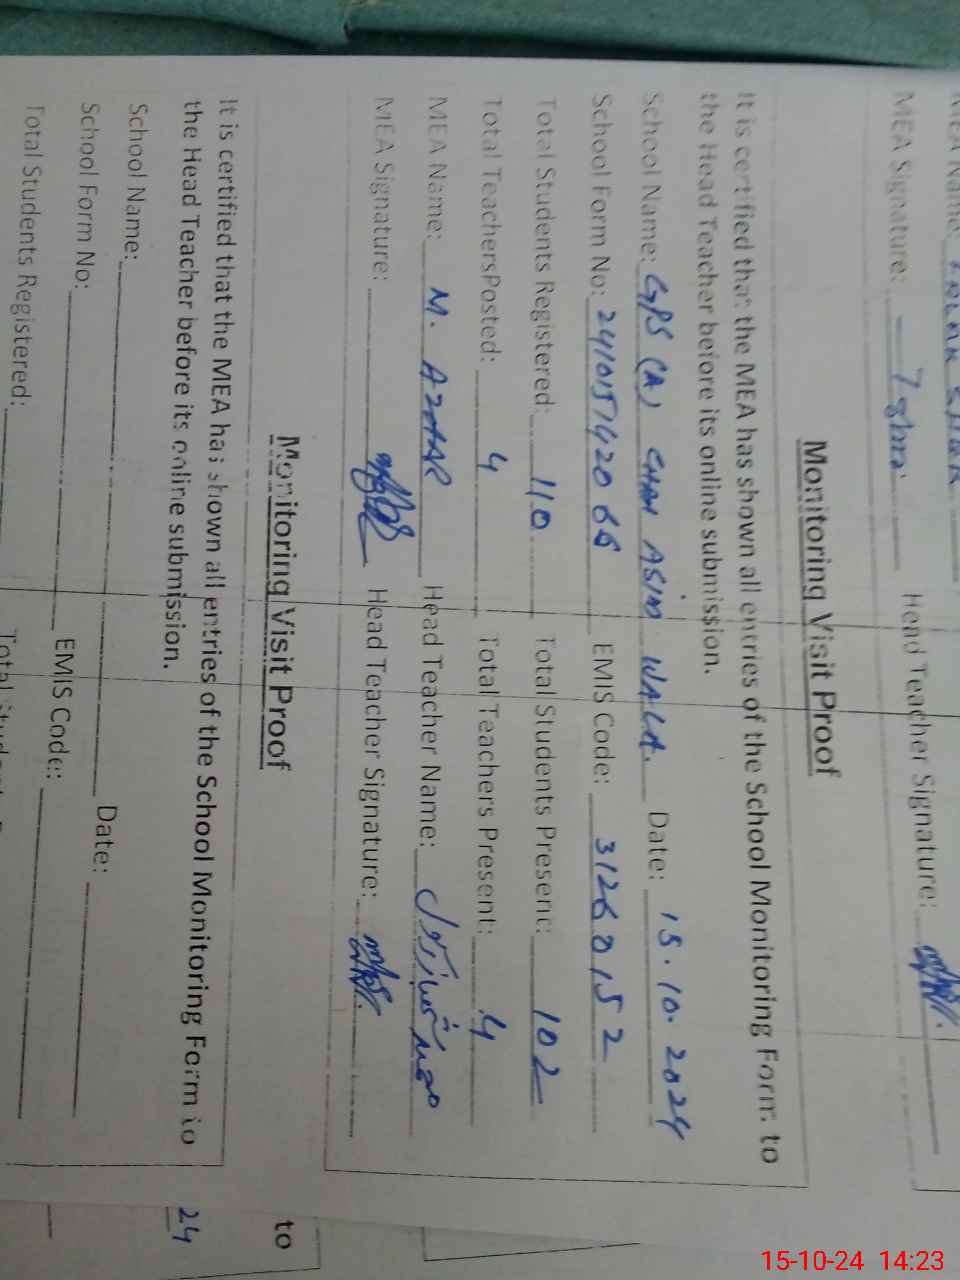 MEA Name:
MEA Signature: Head Teacher Signature:
Monitoring Visit Proof
It is certified that the MEA has shown all entries of the School Monitoring Form to
the Head Teacher before its online submission.
School Name: GPS (A) CHAH ASIM WALA. Date: 15.10.2024
School Form No: EMIS Code: 31260152
Total Students Registered: 110 Total Students Present: 102
Total TeachersPosted: 4 Total Teachers Present: 4
MEA Name: M. AZHAR Head Teacher Name:
MEA Signature: Head Teacher Signature:
Monitoring Visit Proof
It is certified that the MEA has shown all entries of the School Monitoring Form to
the Head Teacher before its online submission.
School Name: Date:
School Form No: EMIS Code:
Total Students Registered:
to
24
15-10-24 14:23